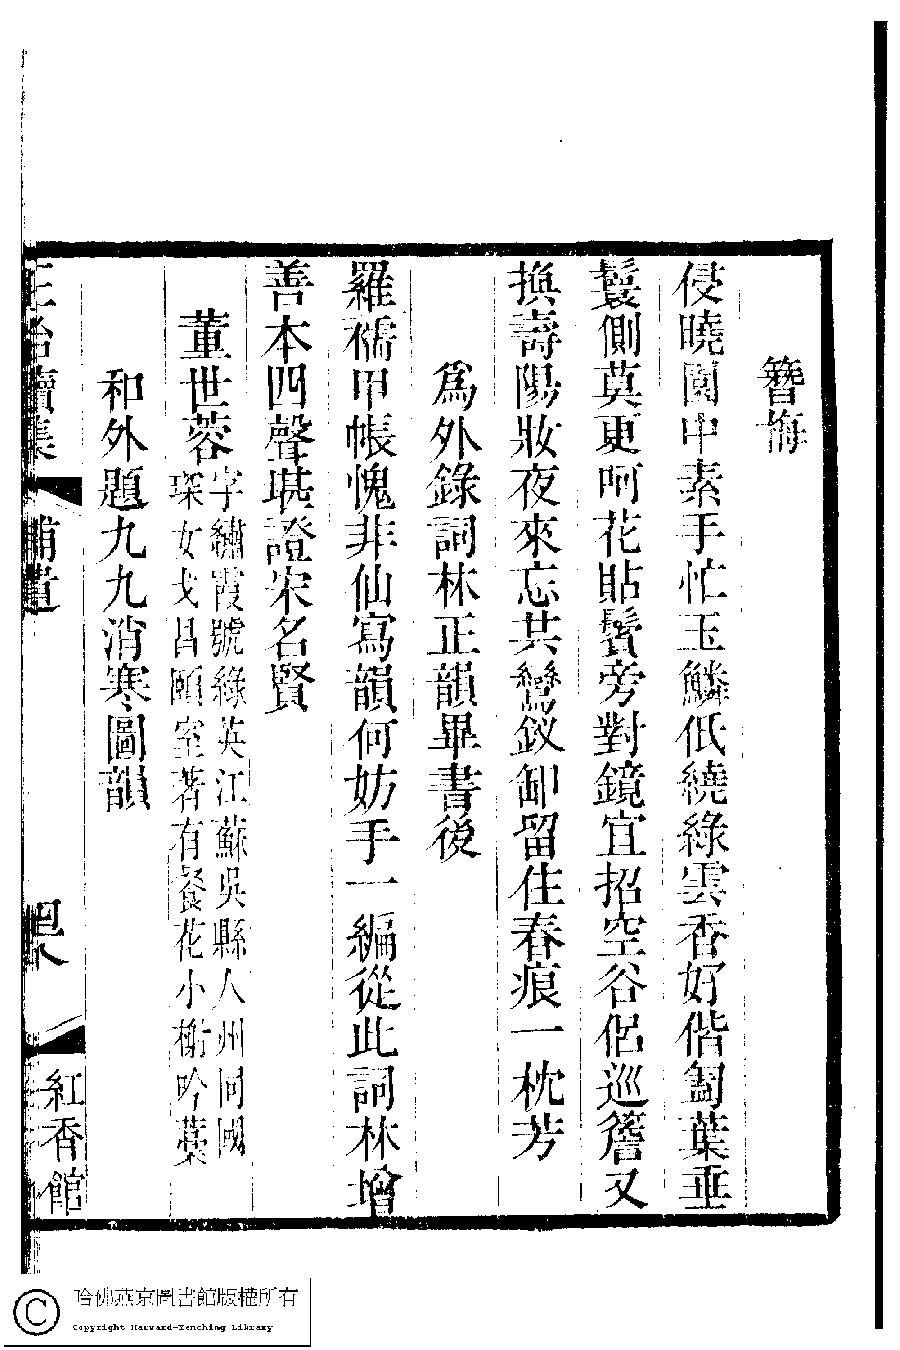 簪梅
侵曉園中素手忙玉鱗低繞綠雲香好偕匐葉垂
鬟側莫更呵花貼鬢旁對鏡宜招空谷侶巡簷又
換壽陽妝夜來忘共鸞釵卸留住春痕一枕芳
為外錄詞林正韻畢書後
羅襦甲帳愧非仙寫韻何妨手一編從此詞林增
善本四聲堪證宋名賢
董世蓉
字繡霞號綠英江蘇吳縣人州同國
琛女戈昌頤室著有餐花小榭吟藁
和外題九九消寒圖韻
正始續集 補遺
紅香館
哈佛燕京圖書館版權所有
Copyright Harvard-Yenching Library